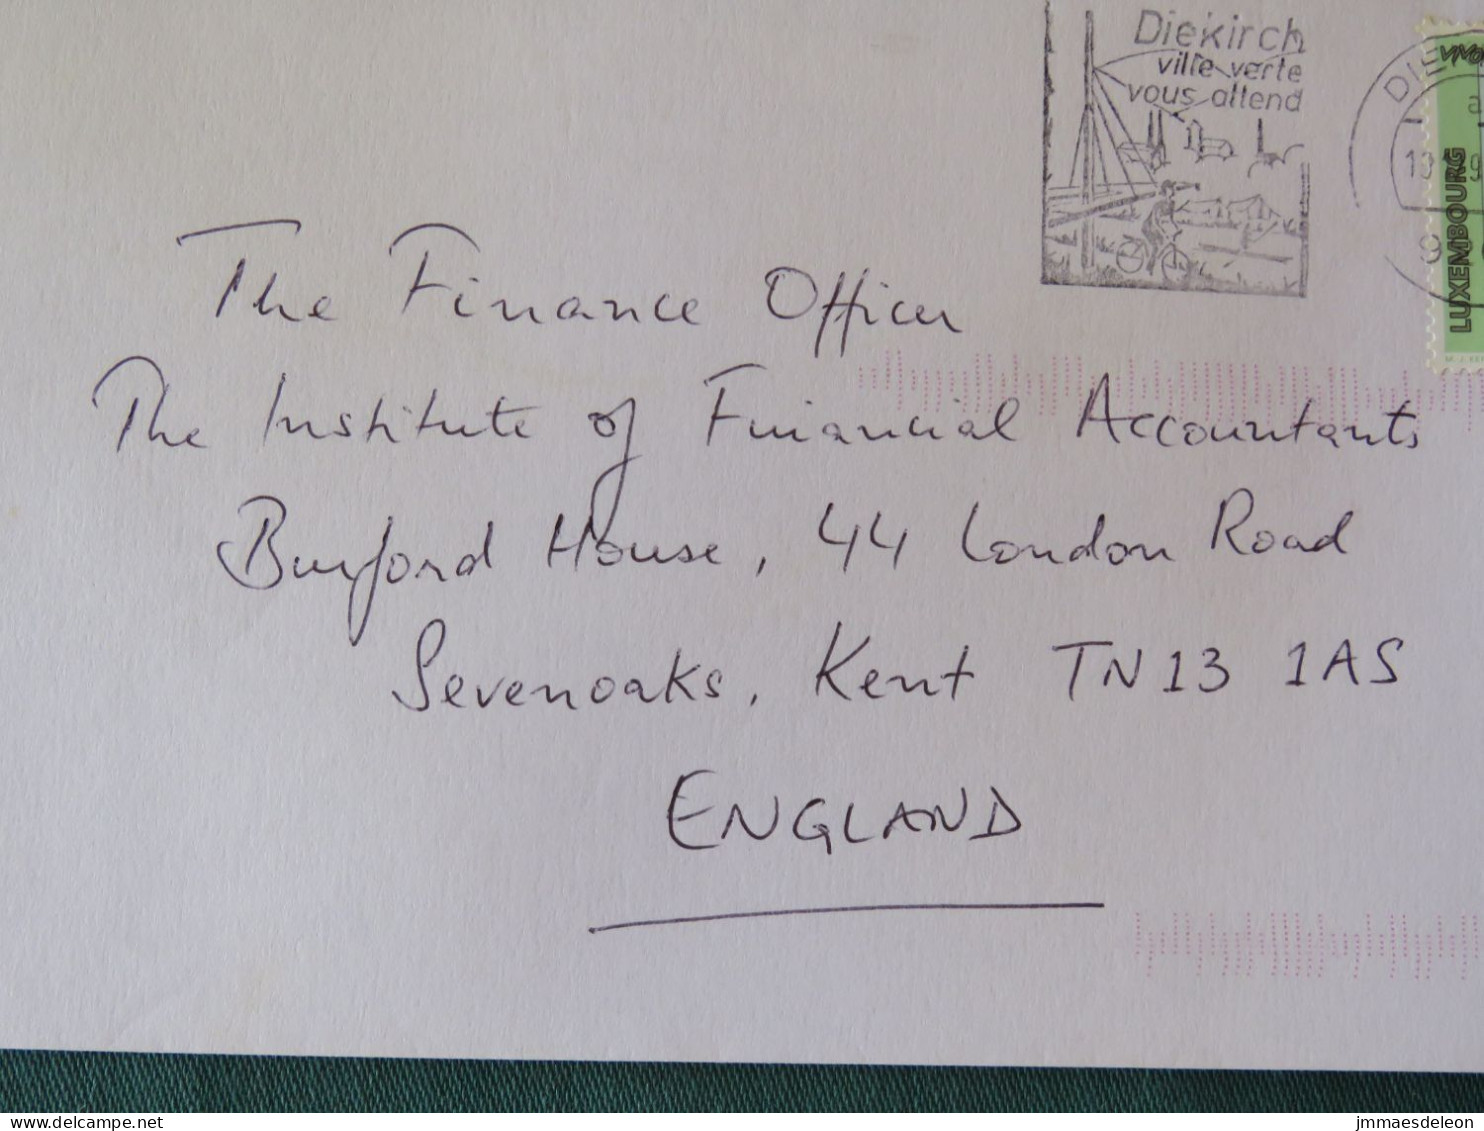 Diekirch
ville verte
vous attend
LUXEMBOURG
The Finance Officer
The Institute of Financial Accountants
Burford House, 44 London Road
Sevenoaks, Kent TN13 1AS
ENGLAND
delcampe.net
jmmaesdeleon